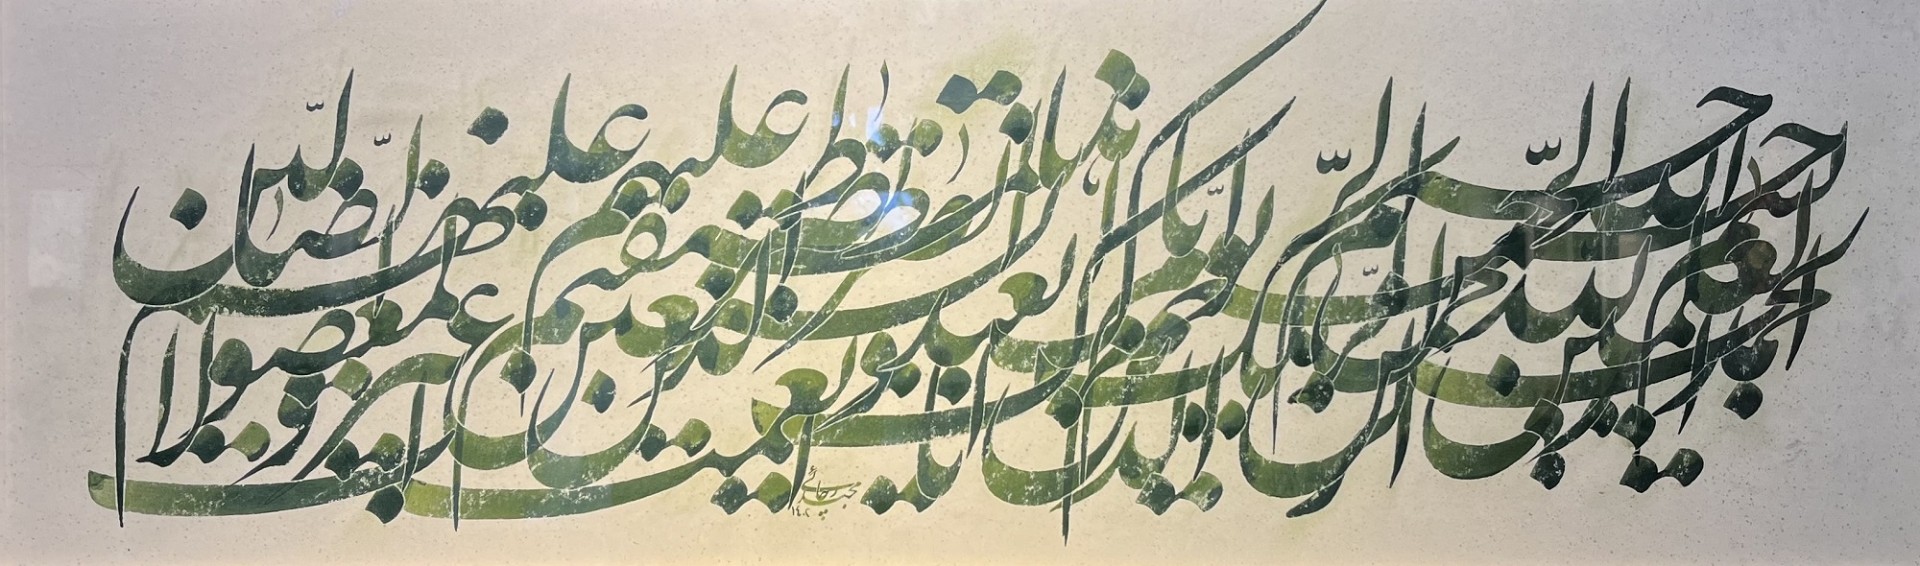 بسم الله الرحمن الرحيم
الحمد لله رب العلمين
الرحمن الرحيم
ملك يوم الدين
إياك نعبد وإياك نستعين
اهدنا الصراط المستقيم
صراط الذين أنعمت عليهم
غير المغضوب عليهم ولا الضالين
۱۴۰۲